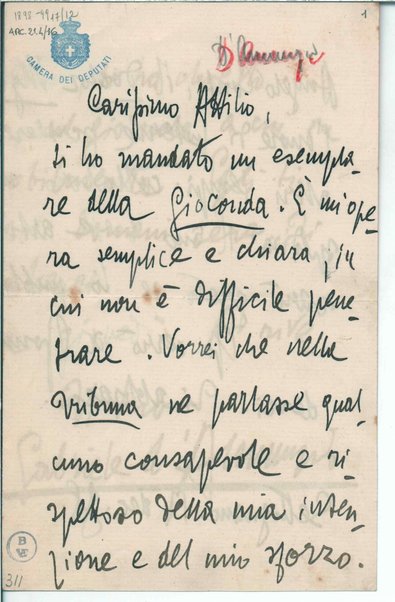 1898-99 17/12
ARC.21.4/36
1
D'Annunzio
CAMERA DEI DEPUTATI
Carissimo Attilio,
ti ho mandato un esempla-
re della Gioconda. È un'ope-
ra semplice e chiara, in
cui non è difficile pene-
trare. Vorrei che nella
Tribuna ne parlasse qual-
cuno consapevole e ri-
spettoso della mia inten-
zione e del mio sforzo.
311